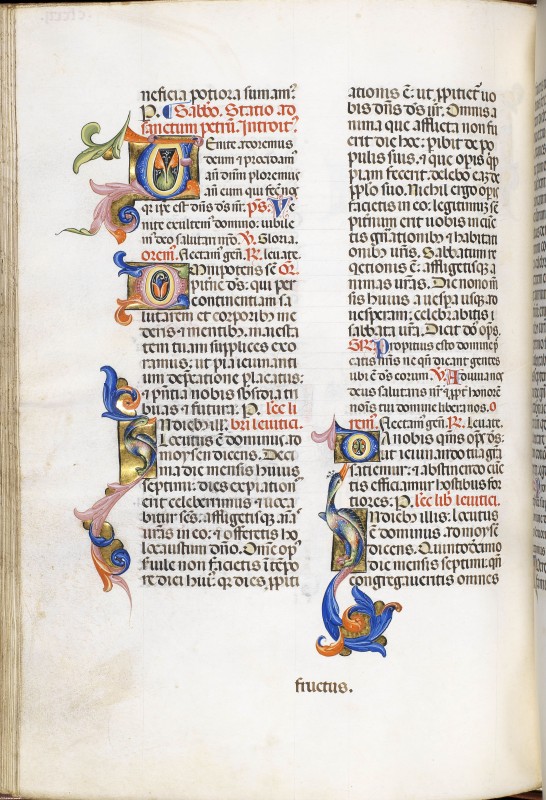 neficia potiora sumam⁹
P. ¶ Sabbo. Statio ad
sanctum petrū. Introit⁹
VEnite adoremus
deum ⁊ procidam⁹
añ dñm ploremus
añ eum qui fec̄ nos
qr ip̄e est dñs ds nr̄. ps. Ve
nite exultem⁹ domino: iubile
m⁹ deo salutari nr̄o. V. Gloria.
orem⁹. flectam⁹ gen̄. R. leuate.
OMnipotens sē Or̄.
pit̄ne ds: qui per
continentiam sa
lutarem et corporib⁹ me
deris ⁊ mentib⁹. maiesta
tem tuam supplices exo
ramus: ut pia ieiunanti
um deprecatione placatus:
⁊ pn̄tia nobis sb̄sidia tri
buas ⁊ futura. P. lec̄ li
bri leuitici.
INdieb⁹ ill̄.
Locutus ē dominus. ad
moysen dicens. Deci
ma die mensis huius
septimi: dies expiation⁹
erit celeberrimus ⁊ uoca
bitur sc̄s. affligetisq; aīas
ur̄as in eo: ⁊ offeretis ho
locaustum dño. Om̄e op⁹
seruile non facietis ī tēpo
re diei hui⁹: qr dies ppiti
ationis ē: ut ppitiet̄ uo
bis dñs ds ur̄. Omnis a
nima que afflicta non fu
erit die hoc: pibit de po
pulis suis. ⁊ que opis qp
piam fecerit. delebo eaȝ de
pplo suo. Nichil ergo opis
facietis in eo: legitimuȝ se
pitnum erit uobis in cūc
tis gn̄ationib⁹ ⁊ habitati
onib⁹ ur̄is. Sabbatum re
qetionis ē. affligetisq; a
nimas ur̄as. Die nono m̄
sis huius a uespa usq; ad
uesperam: celebrabitis
sabbata ur̄a. Dicit dn̄s ops.
GR. Propitius esto domine p
catis nr̄is ne qn̄ dicant gentes
ubi ē ds eorum. V. Adiuua nos
deus salutaris nr̄ ⁊ ppt̄ honorē
nois tui domine libera nos. O
rem⁹. flectam⁹ gen̄. R. leuate.
DA nobis qs ops ds:
ut ieiunando tua gra
satiemur: ⁊ abstinendo cūc
tis efficiamur hostibus for
tiores. P. lec̄ lib̄ leuitici.
INdieb⁹ illis: locutus
ē dominus. ad moysē
dicens. Quintodecimo
die mensis septimi: qn̄
congregaueritis omnes
fructus.